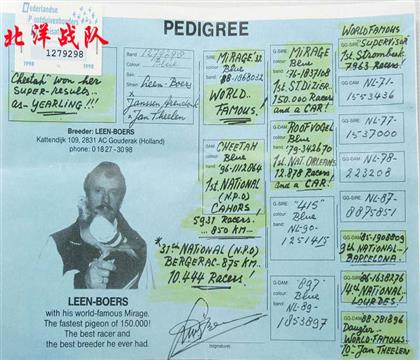 PEDIGREE
Nederlandse
Postduivenhouders
北洋战队
1279298
1998
1998
Cheetah won her
SUPER-RESULTS
as YEARLING!!!
Breeder: LEEN-BOERS
Kattendijk 109, 2831 AC Gouderak (Holland)
phone: 01827 - 3098
LEEN-BOERS
with his world-famous Mirage.
The fastest pigeon of 150.000!
The best racer and
the best breeder he ever had.
Band
1279298
colour
Blue
Sex
Hen
Leen-Boers
Janssen Arendonk
+ Jan Theelen
SIRE
MIRAGE II
colour
Blue
88-1068032
WORLD
FAMOUS!
DAM
CHEETAH
Blue
96-1112864
1st NATIONAL
(N.P.O)
CAHORS!
5931 Racers!
850 KM..
*31st NATIONAL (N.P.O)
BERGERAC-875 KM..
10.444 Racers!
(signature)
G-SIRE
MIRAGE
Blue
76-1837108
1st ST.DIZIER
150.000 Racers
and a CAR!
G-DAM
ROOFVOGEL
Blue
79-342670
1st NAT. ORLEANS
12.878 Racers
and a CAR!
G-SIRE
"415"
colour
Blue
NL-90-
1251415
G-DAM
"897"
colour
Blue
NL-89-
1853897
WORLDFAMOUS
GG-SIRE
"SUPERVISOR"
1st Strombeek
7963 Racers!
GG-DAM
NL-71-
1553436
GG-SIRE
NL-77-
1537000
GG-DAM
NL-78-
223208
GG-SIRE
NL-87-
8875851
GG-DAM
85-1908809
9th NATIONAL-
BARCELONA.
GG-SIRE
86-1638276
14th NATIONAL
LOURDES!
GG-DAM
88-2181896
Daughter
WORLD-FAMOUS
"O"-JAN THEELEN